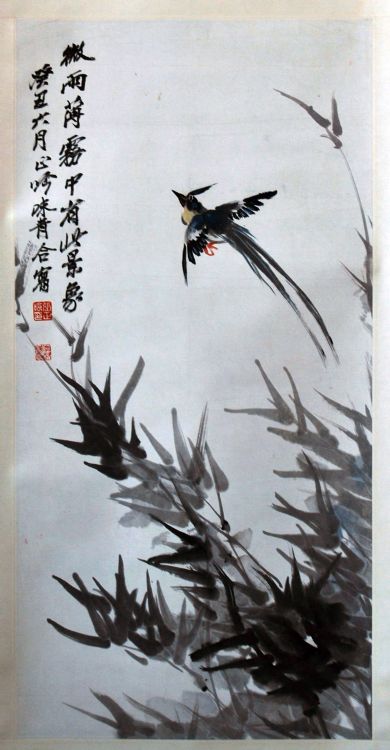 微雨薄霧中有此景象
癸丑六月正吟味青合寫